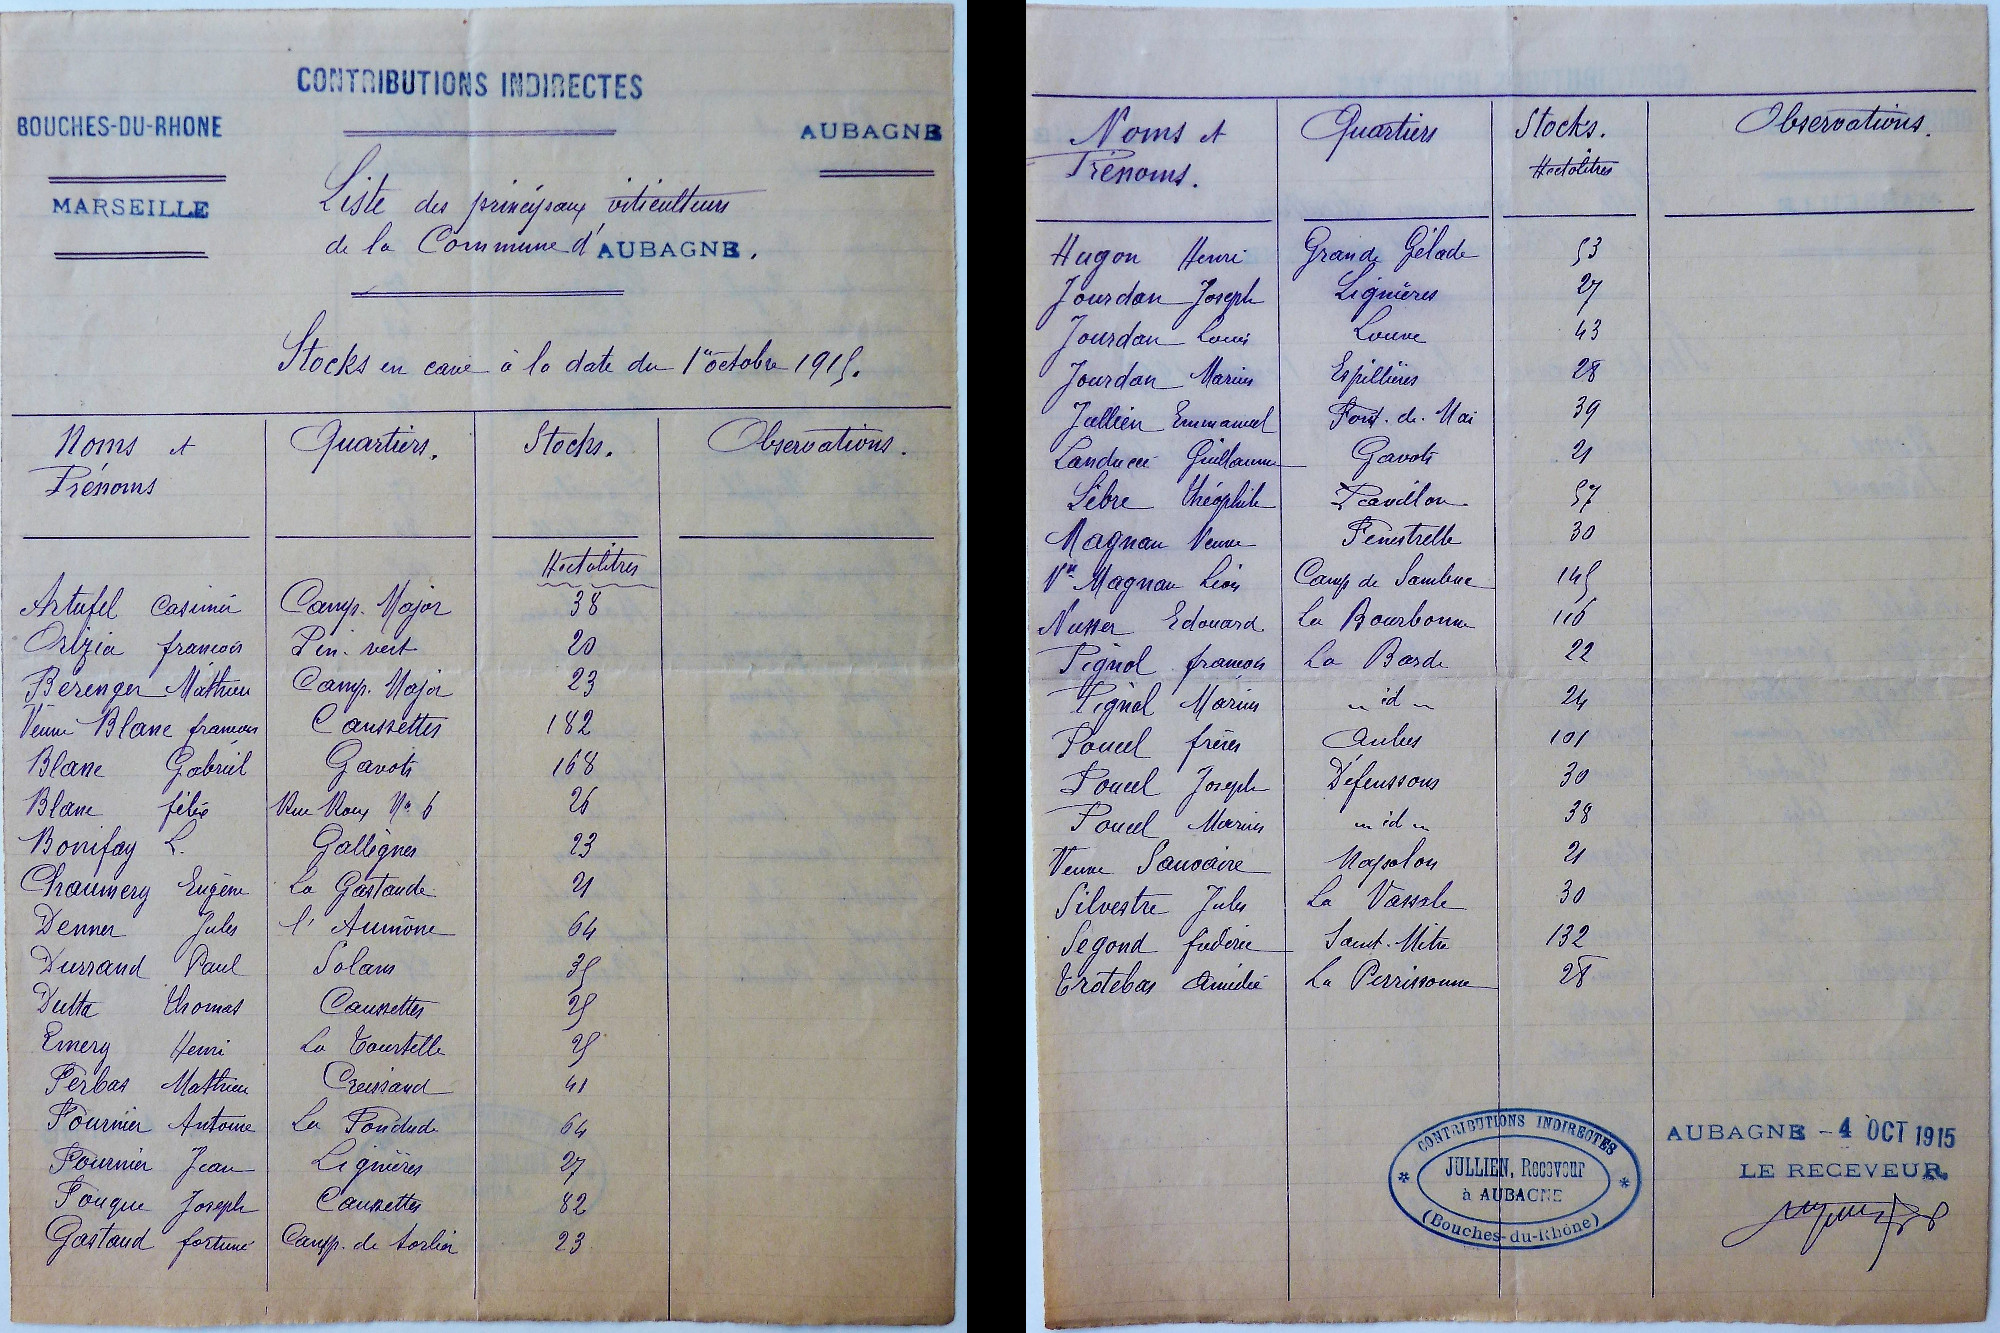 CONTRIBUTIONS INDIRECTES
BOUCHES-DU-RHONE
AUBAGNE
MARSEILLE
Liste des principaux viticulteurs
de la Commune d'AUBAGNE.
Stocks en cave à la date du 1er octobre 1915.
Noms et Prénoms Quartiers. Stocks. Observations.
Hectolitres
Artufel Casimir Camp. Major 38
Orizia françois Pin. vert 20
Bérenger Mathieu Camp. Major 23
Veuve Blanc françois Caussettes 182
Blanc Gabriel Gavots 168
Blanc félix Rue Roux No 6 26
Bonifay L. Gallègnes 23
Chaumery Eugène La Gastaude 21
Denner Jules l'Aumône 64
Durrand Paul Solans 35
Dutta Thomas Caussettes 25
Emery Henri La Tourtelle 25
Ferbas Mathieu Creissaud 41
Fournier Antoine La Fondude 64
Fournier Jean Lignières 27
Fouque Joseph Caussettes 82
Gastaud fortuné Camp. de Sarlier 23
Noms et Prénoms. Quartiers Stocks. Observations.
Hectolitres
Hugon Henri Grande Gélade 53
Jourdan Joseph Lignières 27
Jourdan Louis Louve 43
Jourdan Marius Espillières 28
Jullien Emmanuel Font. de. Mai 39
Landucci Guillaume Gavots 21
Lèbre Théophile Pavillon 57
Magnan Veuve Fenestrelle 30
Vve Magnan Léon Camp de Sambuc 145
Nusser Edouard La Bourbonne 116
Pignol françois La Barde 22
Pignol Marius id 24
Poucel frères Aubes 101
Poucel Joseph Défenssons 30
Poucel Marius id 38
Veuve Sauvaire Napolon 21
Silvestre Jules La Vassale 30
Segond fréderic Saint. Mitre 132
Trotebas Amédée La Perrissonne 28
CONTRIBUTIONS INDIRECTES
JULLIEN, Receveur
à AUBAGNE
(Bouches-du-Rhône)
AUBAGNE - 4 OCT 1915
LE RECEVEUR,